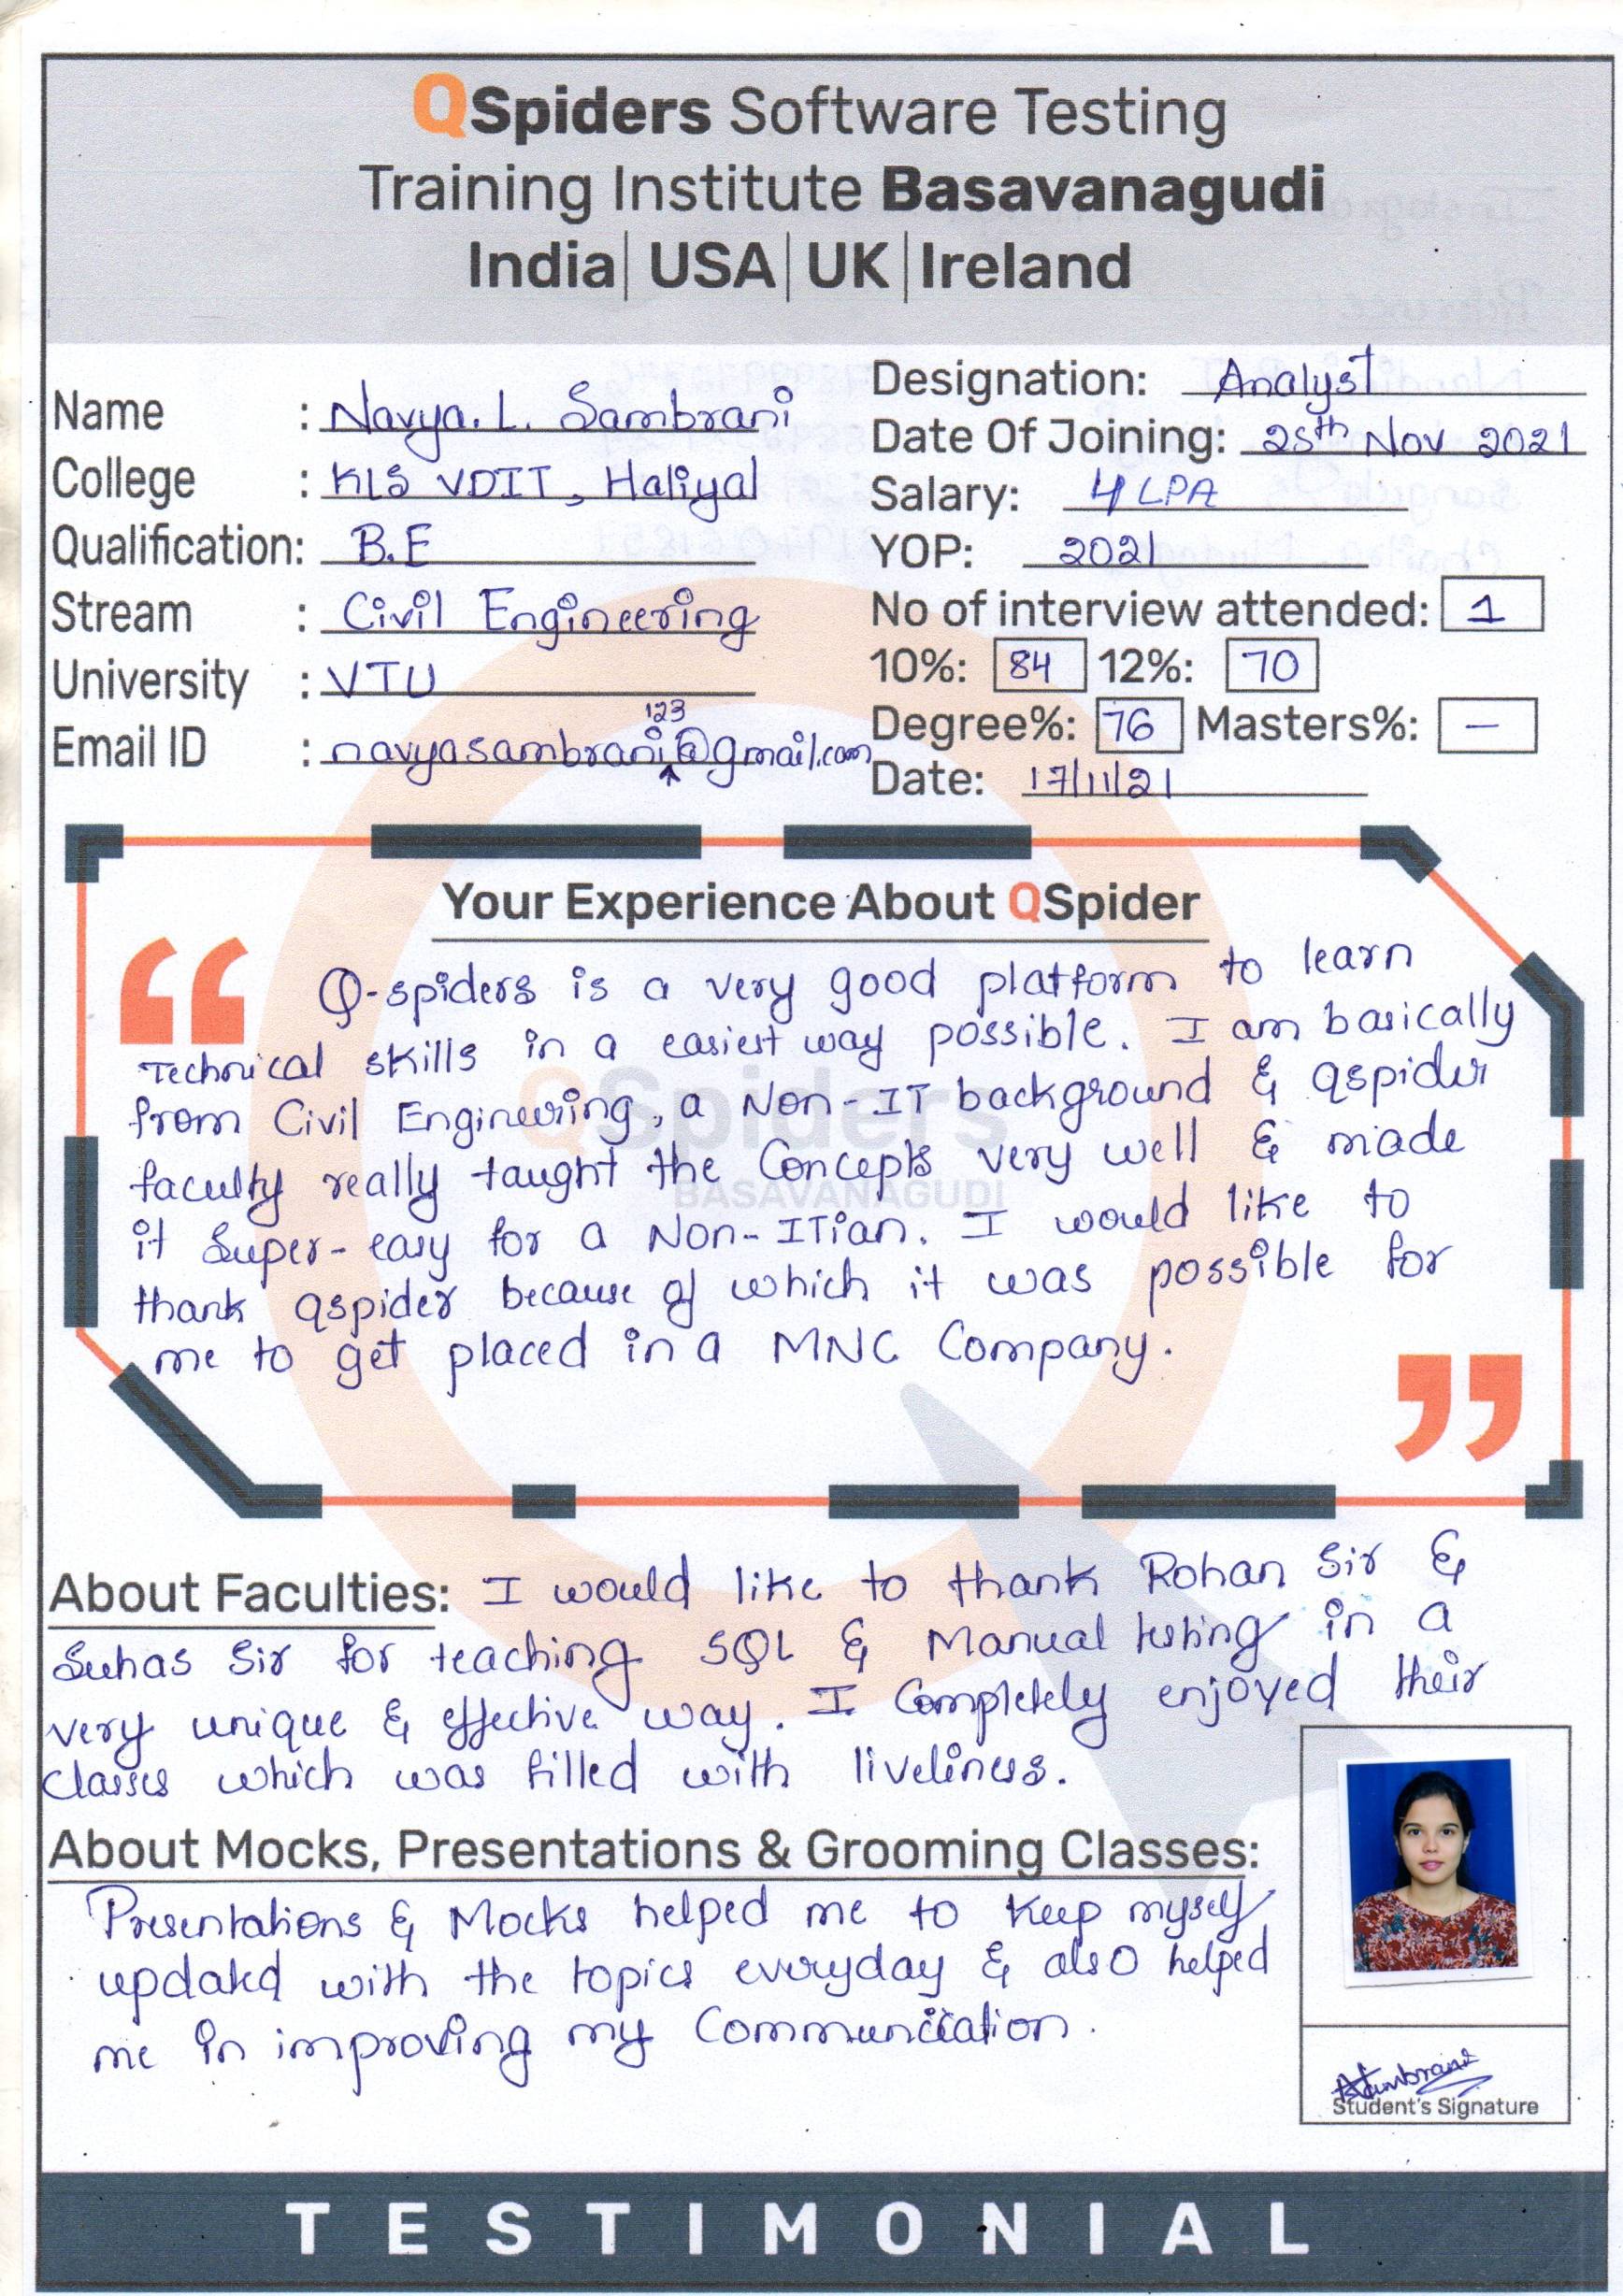 QSpiders Software Testing
Training Institute Basavanagudi
India | USA | UK | Ireland
Name : Navya. L. Sambrani
College : KLS VDIT, Haliyal
Qualification: B.E
Stream : Civil Engineering
University : VTU
123
Email ID : navyasambrani@gmail.com
Designation: Analyst
Date Of Joining: 25th Nov 2021
Salary: 4 LPA
YOP: 2021
No of interview attended: 1
10%: 84 12%: 70
Degree%: 76 Masters%: —
Date: 17/11/21
Your Experience About QSpider
“ Q-spiders is a very good platform to learn
Technical skills in a easiest way possible. I am basically
from Civil Engineering, a Non-IT background & qspider
faculty really taught the Concepts very well & made
it Super-easy for a Non-ITian. I would like to
thank qspider because of which it was possible for
me to get placed in a MNC Company. ”
QSpiders
BASAVANAGUDI
About Faculties: I would like to thank Rohan Sir &
Suhas Sir for teaching SQL & Manual testing in a
very unique & effective way. I Completely enjoyed their
Classes which was filled with liveliness.
About Mocks, Presentations & Grooming Classes:
Presentations & Mocks helped me to keep myself
updated with the topics everyday & also helped
me in improving my Communciation.
Sambrani
Student's Signature
TESTIMONIAL